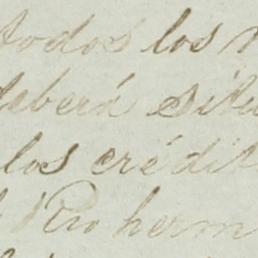 todos los
deberá situ
los crédit
Rio herm